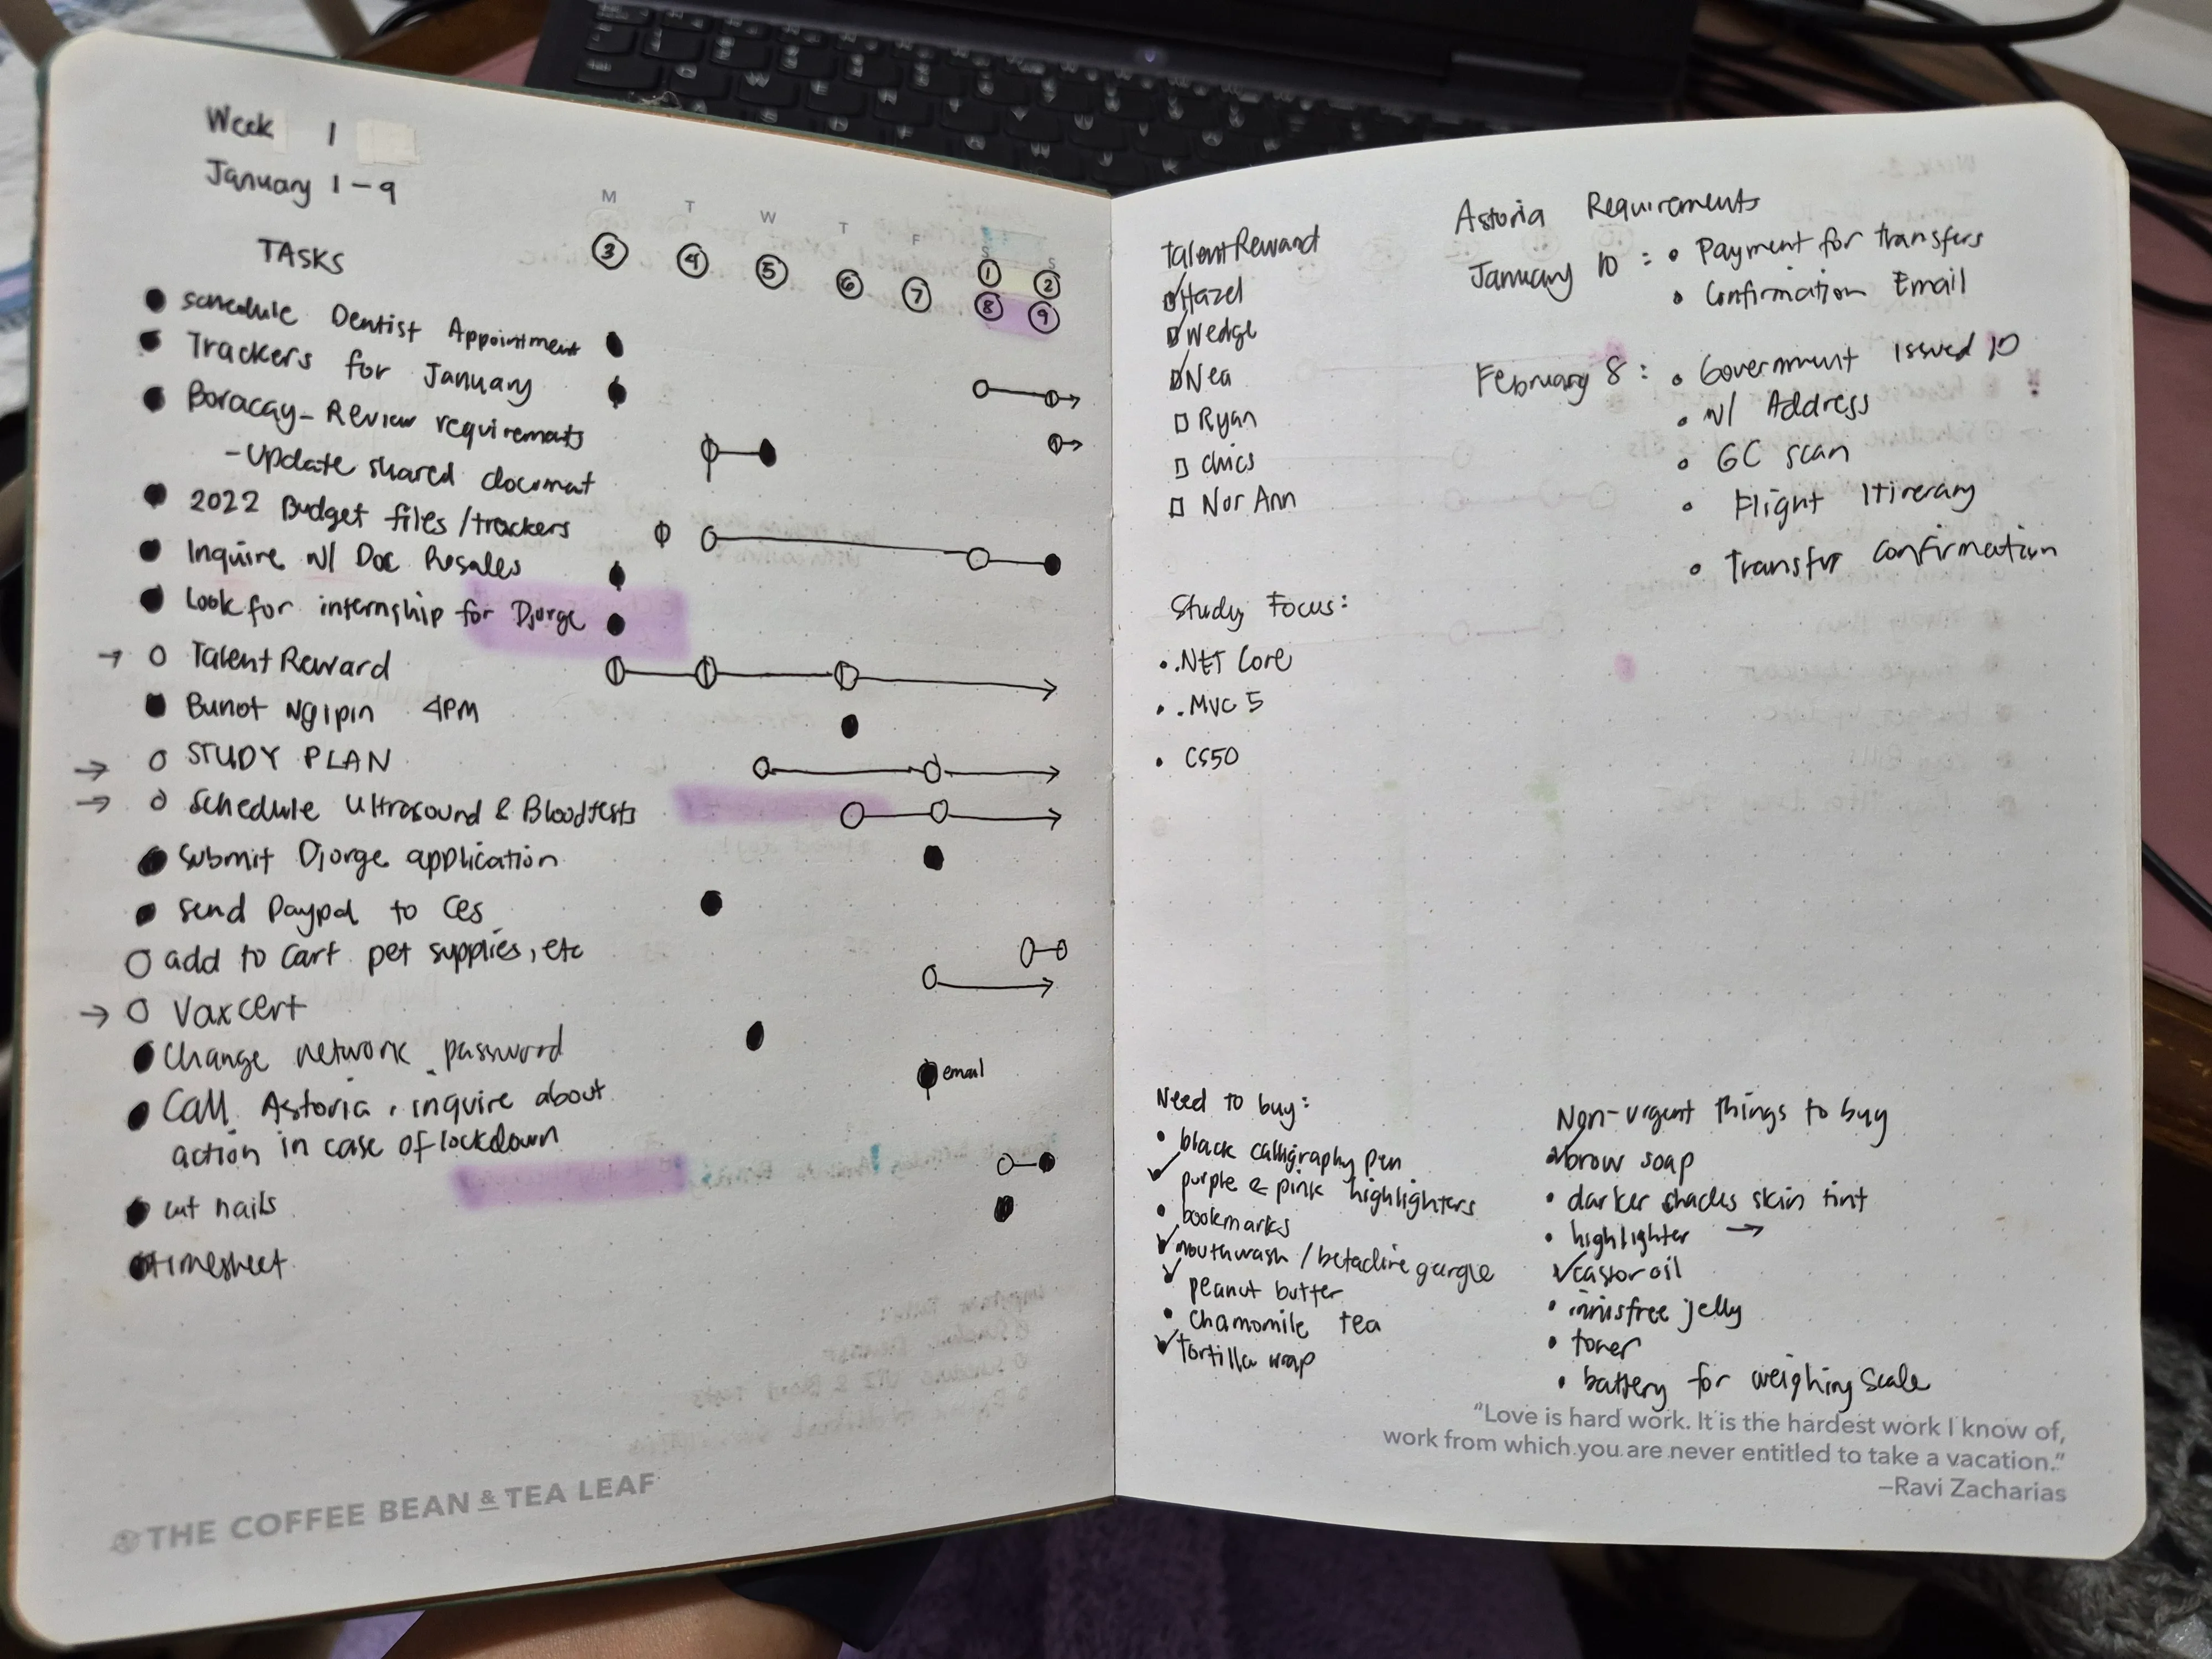 Week 1
January 1-9
M T W T F S S
3 4 5 6 7 1 2
8 9
TASKS
schedule Dentist Appointment
Trackers for January
Boracay - Review requirements
- Update shared document
2022 Budget files / trackers
Inquire w/ Doc Rosales
Look for internship for Djorge
→ Talent Reward
Bunot Ngipin 4PM
→ STUDY PLAN
→ Schedule Ultrasound & Bloodtests
Submit Djorge application
Send Paypal to Ces
add to cart pet supplies, etc
→ Vaxcert
Change network password
Call Astoria, inquire about
email
action in case of lockdown
cut nails
timesheet
THE COFFEE BEAN & TEA LEAF
Talent Reward
Hazel
Wedge
Nea
Ryan
Chics
Nor Ann
Astoria Requirements
January 10 : • Payment for transfers
• Confirmation Email
February 8 : • Government Issued ID
• w/ Address
• GC scan
• Flight Itirerary
• Transfer Confirmation
Study Focus:
• .NET Core
• .MVC 5
• CS50
Need to buy:
• black calligraphy pen
✓ purple & pink highlighters
• bookmarks
✓ mouthwash / betadine gargle
✓ peanut butter
• chamomile tea
✓ tortilla wrap
Non-urgent things to buy
brow soap
• darker shades skin tint
• highlighter →
✓ castor oil
• innisfree jelly
• toner
• battery for weighing scale
"Love is hard work. It is the hardest work I know of,
work from which you are never entitled to take a vacation."
—Ravi Zacharias